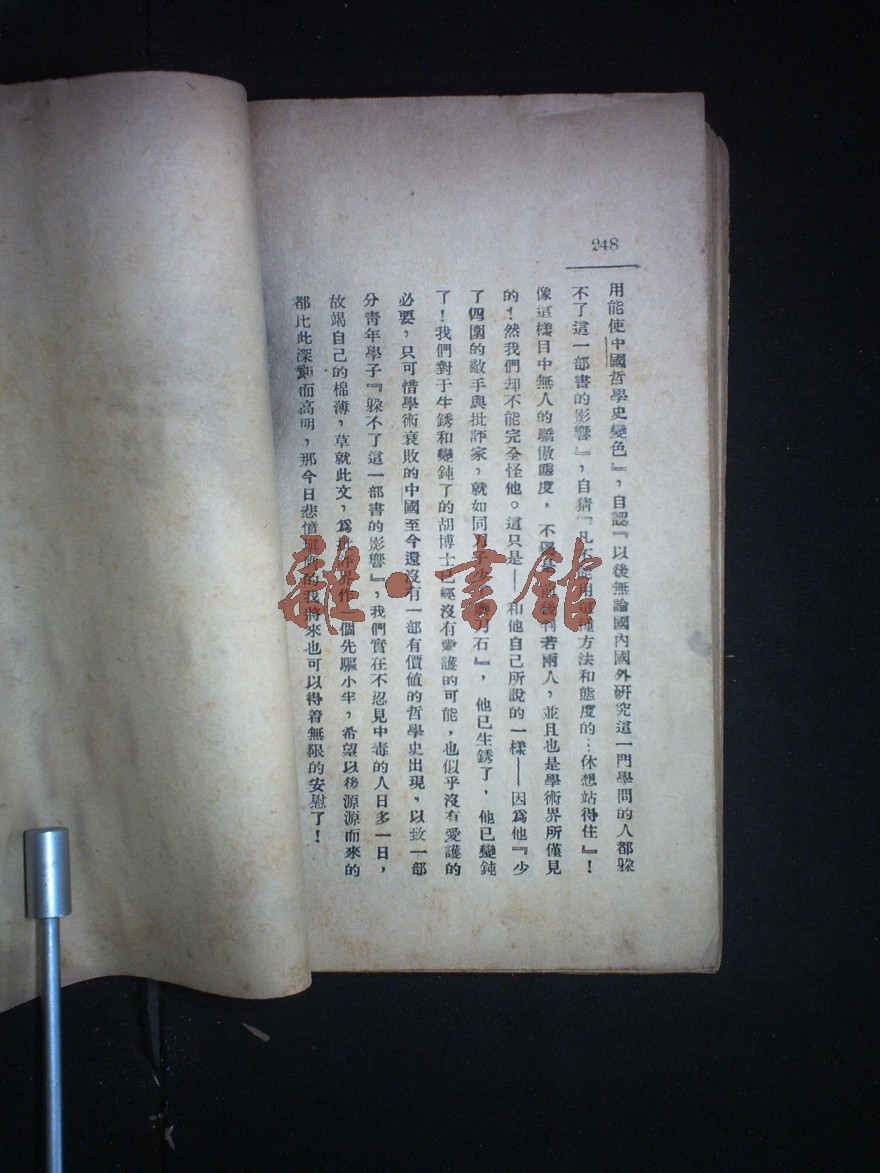 248
用能使中國哲學史變色』，自認『以後無論國內國外研究這一門學問的人都躱
不了這一部書的影響』，自猜『凡不能用這種方法和態度的…休想站得住』！
像這樣目中無人的驕傲態度，不獨若兩人，並且也是學術界所僅見
的！然我們却不能完全怪他。這只是——和他自己所說的一樣——因爲他『少
了四圍的敵手與批評家，就如同刀子少了磨刀石』，他已生銹了，他已變鈍
了！我們對于生銹和變鈍了的胡博士已經沒有愛護的可能，也似乎沒有愛護的
必要，只可惜學術衰敗的中國至今還沒有一部有價値的哲學史出現，以致一部
分靑年學子『躱不了這一部書的影響』，我們實在不忍見中毒的人日多一日，
故竭自己的棉薄，草就此文，爲批評界作一個先驅小卒，希望以後源源而來的
都比此深刻而高明，那今日悲憤的我將來也可以得着無限的安慰了！
雜·書館